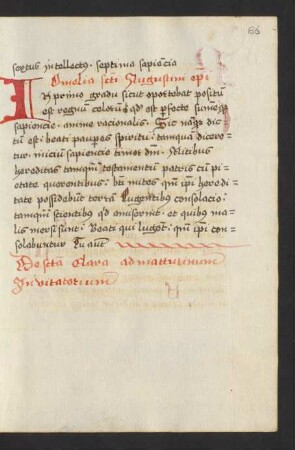 86
sextus intellectus . septima sapiencia
Omelia scti Augustini epi
In primo gradu sicut oportebat positum
est regnum celorum qd est perfecte
sapiencie anime racionalis . Sic
tum est . beati pauperes spiritu : tamquam dicere
tur . inicium sapiencie timor dni . Mitibus
hereditas tamquam testamentum patris cum pi
etate querentibus : bti mites qm ipi heredi
tate possidebunt terram Lugentibus consolacio :
tamquam scientibus qd amiserint . et quibus ma
lis mersi sint : Beati qui lugent : qm ipi con
solabuntur Tu aut
De scta Clara ad matutinum
Invitatorium